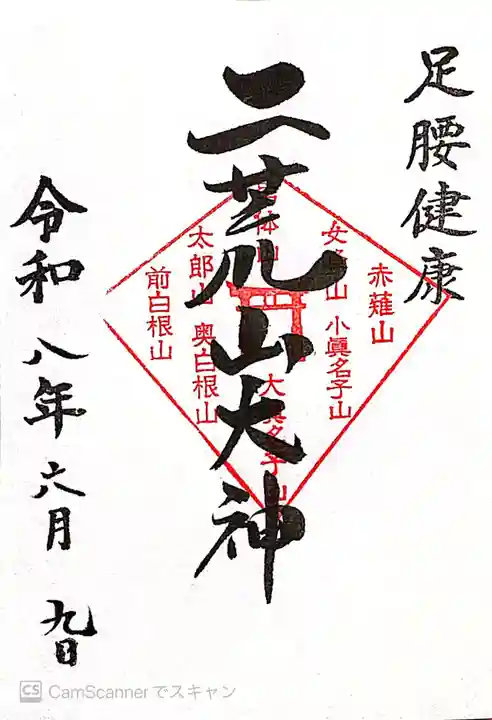 足腰健康
二荒山大神
赤薙山
女峰山
小眞名子山
男体山
大真名子山
太郎山
奥白根山
前白根山
令和八年六月九日
CS CamScannerでスキャン